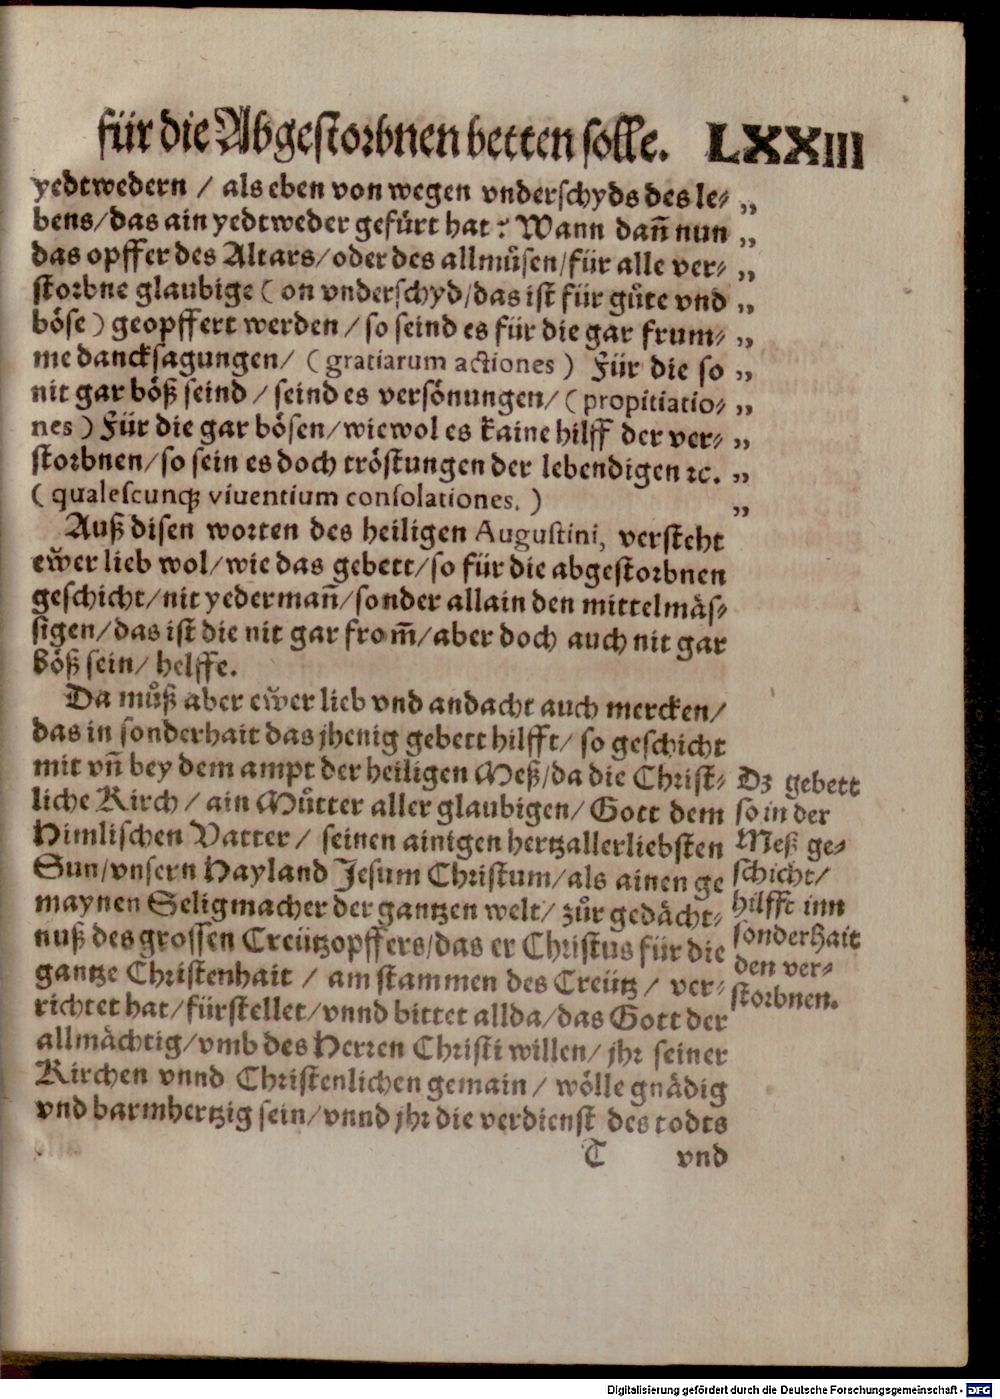 für die Abgestorbnen betten solle. LXXIII
yedtwedern / als eben von wegen vnderschyds des le⸗ „
bens/das ain yedtweder gefürt hat: Wann dañ nun „
das opffer des Altars/oder des allmůsen/für alle ver⸗ „
storbne glaubige (on vnderschyd/das ist für gůte vnd „
böse) geopffert werden / so seind es für die gar frum⸗ „
me dancksagungen/ (gratiarum actiones) Für die so „
nit gar böß seind / seind es versönungen/ (propitiatio⸗ „
nes) Für die gar bösen/wiewol es kaine hilff der ver⸗ „
storbnen/so sein es doch tröstungen der lebendigen ꝛc. „
(qualescunqꝫ viuentium consolationes.) „
Auß disen worten des heiligen Augustini, versteht
ew̃er lieb wol/wie das gebett/so für die abgestorbnen
geschicht/nit yedermañ/sonder allain den mittelmäs⸗
sigen/das ist die nit gar from̃/aber doch auch nit gar
böß sein/ helffe.
Da můß aber ew̃er lieb vnd andacht auch mercken/
das in sonderhait das jhenig gebett hilfft/ so geschicht
mit vñ bey dem ampt der heiligen Meß/da die Christ⸗
liche Kirch / ain Můtter aller glaubigen/ Gott dem
Himlischen Vatter / seinen ainigen hertzallerliebsten
Sun/vnsern Hayland Jesum Christum/als ainen ge
maynen Seligmacher der gantzen welt/ zůr gedächt⸗
nuß des grossen Creützopffers/das er Christus für die
gantze Christenhait / am stammen des Creütz / ver⸗
richtet hat/fürstellet/vnnd bittet allda/das Gott der
allmächtig/vmb des Herren Christi willen/ jhr seiner
Kirchen vnnd Christenlichen gemain / wölle gnädig
vnd barmhertzig sein/vnnd jhr die verdienst des todts
T vnd
Dz gebett
so in der
Meß ge⸗
schicht/
hilfft inn
sonderhait
den ver⸗
storbnen.
Digitalisierung gefördert durch die Deutsche Forschungsgemeinschaft - DFG